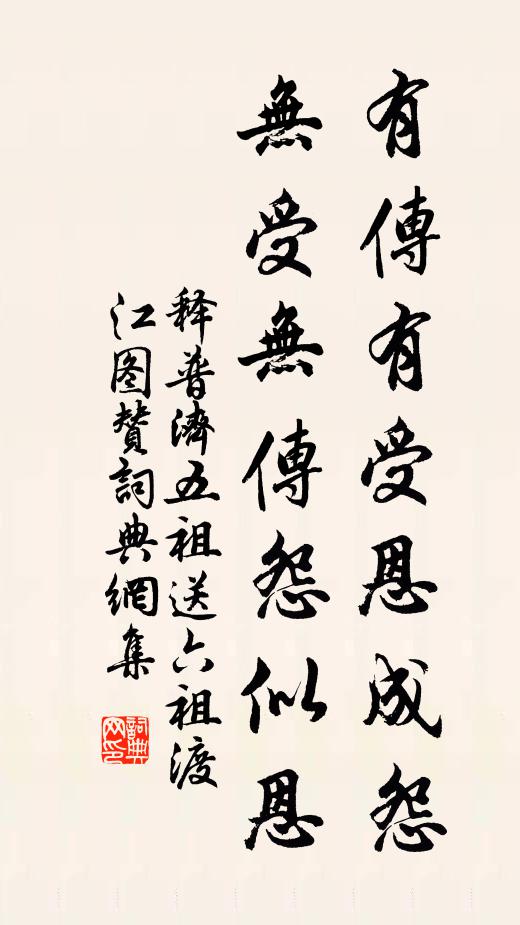 有傳有受恩成怨
無受無傳怨似恩
释普濟五祖送六祖渡
江图赞詞典網集
詞典网印